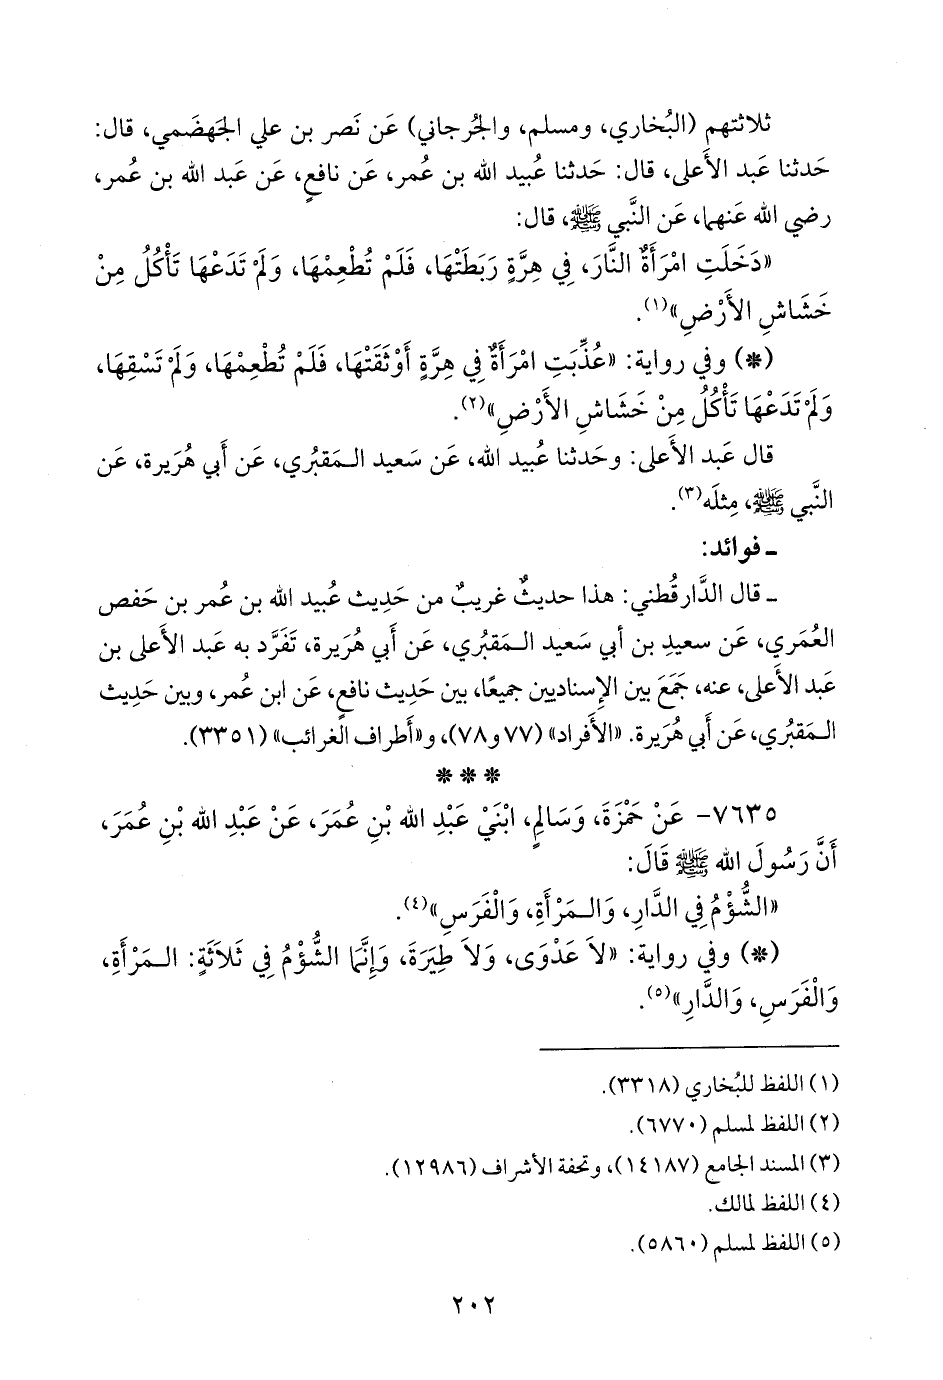 ثلاثتهم (البُخاري، ومسلم، والجُرجاني) عَن نَصر بن علي الجَهضَمي، قال:
حَدثنا عَبد الأَعلى، قال: حَدثنا عُبيد الله بن عُمر، عَن نافعٍ، عَن عَبد الله بن عُمر،
رضي الله عَنهما، عَن النَّبي ﷺ، قال:
«دَخَلَتِ امْرَأَةٌ النَّارَ، فِي هِرَّةٍ رَبَطَتْهَا، فَلَمْ تُطْعِمْهَا، وَلَمْ تَدَعْهَا تَأْكُلُ مِنْ
خَشَاشِ الأَرْضِ»(١).
(*) وفي رواية: «عُذِّبَتِ امْرَأَةٌ فِي هِرَّةٍ أَوْثَقَتْهَا، فَلَمْ تُطْعِمْهَا، وَلَمْ تَسْقِهَا،
وَلَمْ تَدَعْهَا تَأْكُلُ مِنْ خَشَاشِ الأَرْضِ»(٢).
قال عَبد الأَعلى: وحَدثنا عُبيد الله، عَن سَعيد الـمَقبُري، عَن أَبي هُرَيرة، عَن
النَّبي ﷺ، مِثلَه(٣).
ـ فوائد:
ـ قال الدَّارقُطني: هذا حديثٌ غريبٌ من حَدِيث عُبيد الله بن عُمر بن حَفص
العُمَري، عَن سعيدِ بن أَبي سَعيد الـمَقبُري، عَن أَبي هُرَيرة، تَفَرَّد به عَبد الأَعلى بن
عَبد الأَعلى، عنه، جَمَعَ بين الإِسناديين جميعًا، بين حَدِيث نافعٍ، عَن ابن عُمر، وبين حَدِيث
الـمَقبُري، عَن أَبي هُرَيرة. «الأَفراد» (٧٧ و٧٨)، و«أَطراف الغرائب» (٣٣٥١).
* * *
٧٦٣٥- عَنْ حَمْزَةَ، وَسَالِمٍ، ابْنَيْ عَبْدِ الله بْنِ عُمَرَ، عَنْ عَبْدِ الله بْنِ عُمَرَ،
أَنَّ رَسُولَ الله ﷺ قَالَ:
«الشُّؤْمُ فِي الدَّارِ، وَالـمَرْأَةِ، وَالْفَرَسِ»(٤).
(*) وفي رواية: «لاَ عَدْوَى، وَلاَ طِيَرَةَ، وَإِنَّمَا الشُّؤْمُ فِي ثَلاَثَةٍ: الـمَرْأَةِ،
وَالْفَرَسِ، وَالدَّارِ»(٥).
(١) اللفظ للبُخاري (٣٣١٨).
(٢) اللفظ لمسلم (٦٧٧٠).
(٣) المسند الجامع (١٤١٨٧)، وتحفة الأشراف (١٢٩٨٦).
(٤) اللفظ لمالك.
(٥) اللفظ لمسلم (٥٨٦٠).
٢٠٢